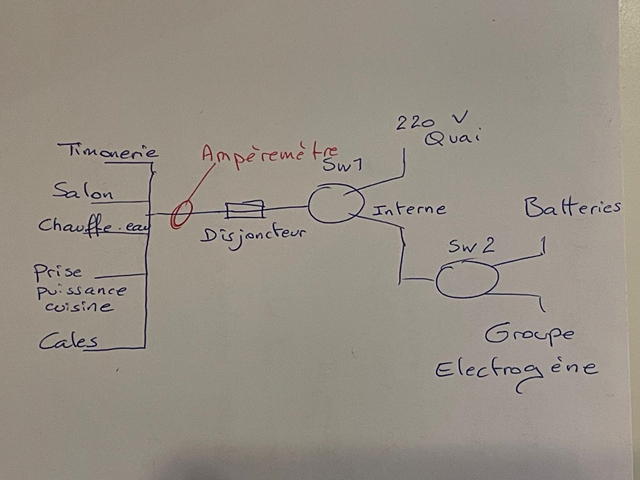 220 V
Quai
Timonerie
Ampèremètre
Sw1
Salon
Chauffe-eau
Interne
Batteries
Disjoncteur
Sw2
Prise
puissance
cuisine
Cales
Groupe
Electrogène